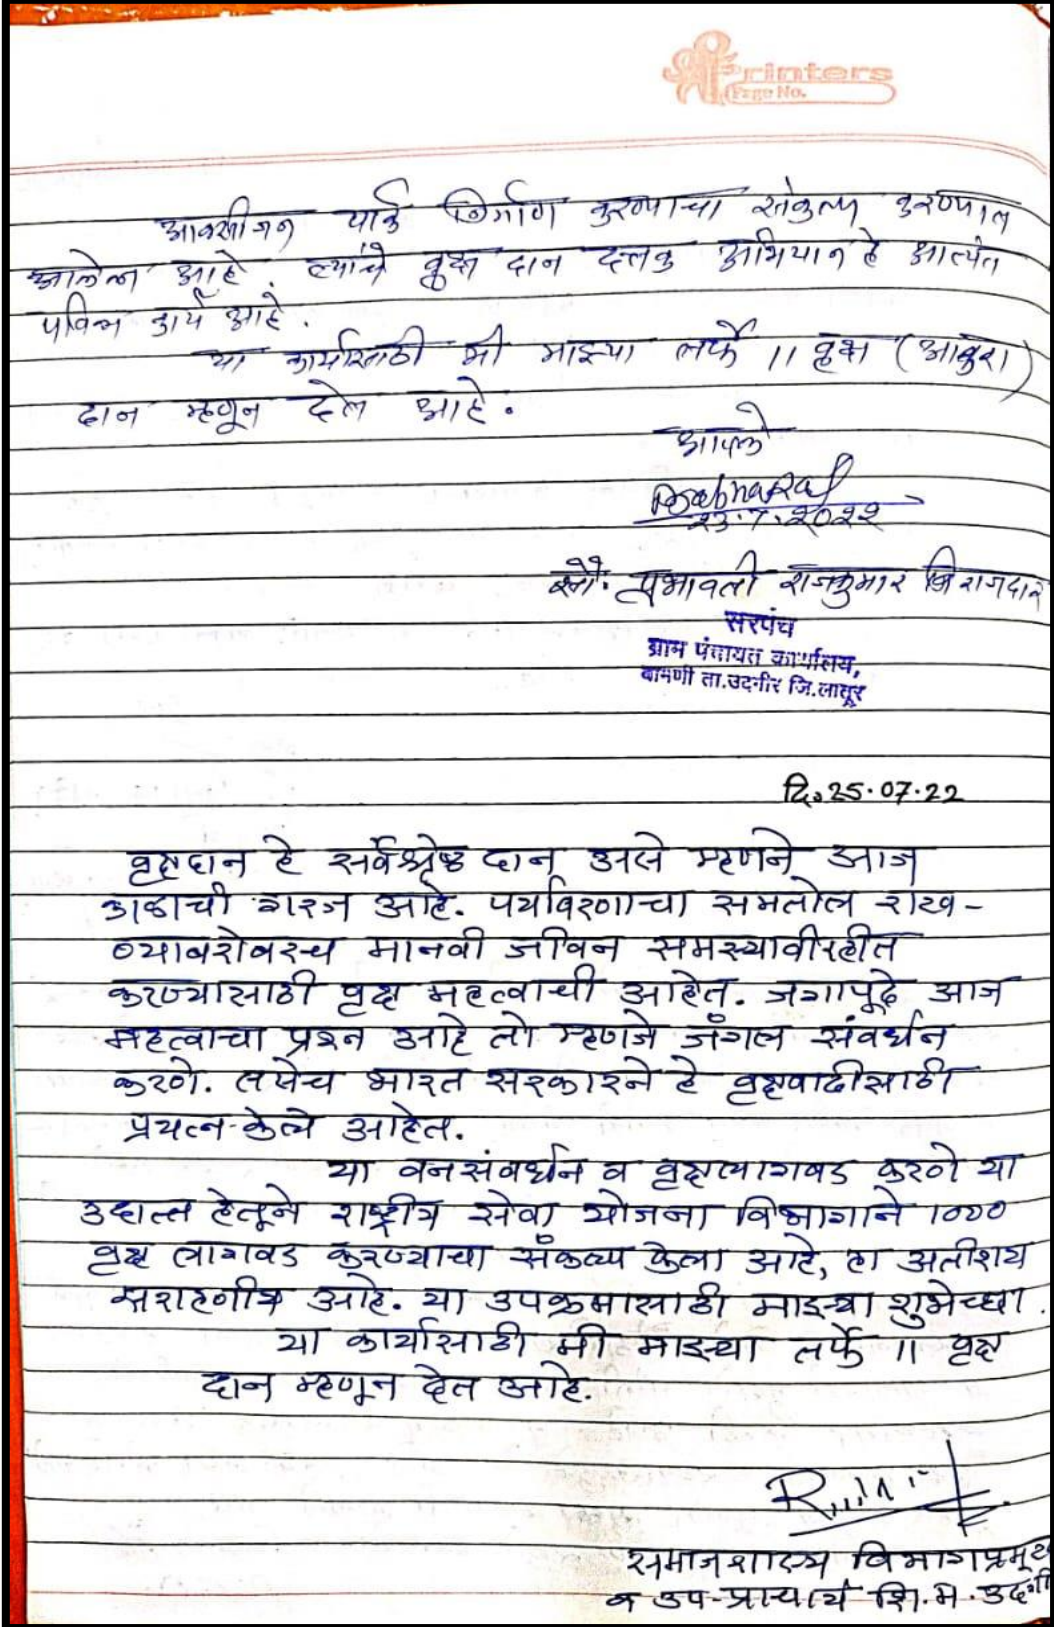 Printers
Page No.
आक्सीजन पार्क निर्माण करण्याचा संकल्प करण्यात
आलेला आहे. त्यांचे वृक्ष दान दत्तक अभियान हे आत्यंत
पवित्र कार्य आहे.
या कार्यासाठी मी माझ्या तर्फे 11 वृक्ष
दान म्हणून देत आहे.
आपले
23.7.2022
सौ. प्रभावती राजकुमार बिराजदार
सरपंच
ग्राम पंचायत कार्यालय,
बामणी ता.उदगीर जि.लातूर
दि. 25.07.22
वृक्षदान हे सर्वश्रेष्ठ दान असे म्हणने आज
काळाची गरज आहे. पर्यावरणाचा समतोल राख-
ण्याबरोबरच मानवी जीवन समस्यावीरहीत
करण्यासाठी वृक्ष महत्वाची आहेत. जगापूढे आज
महत्वाचा प्रश्न आहे तो म्हणजे जंगल संवर्धन
करणे. तसेच भारत सरकारने हे वृक्षवाढीसाठी
प्रयत्न केले आहेत.
या वनसंवर्धन व वृक्षलागवड करणे या
उदात्त हेतूने राष्ट्रीय सेवा योजना विभागाने 1000
वृक्ष लागवड करण्याचा संकल्प केला आहे, हा अतीशय
सराहणीय आहे. या उपक्रमासाठी माझ्या शुभेच्छा.
या कार्यासाठी मी माझ्या तर्फे 11 वृक्ष
दान म्हणून देत आहे.
समाजशास्त्र विभागप्रमूख
व उप-प्राचार्य शि.म. उदगी